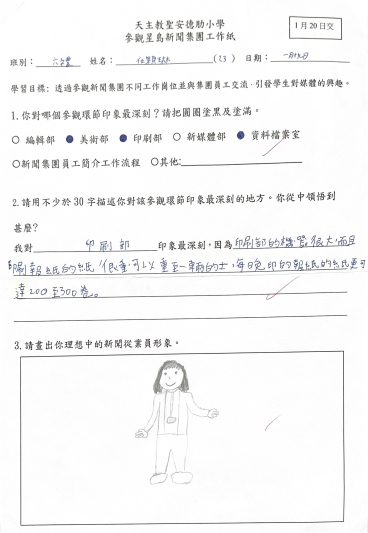 天主教聖安德肋小學
參觀星島新聞集團工作紙
1月20日交
班別： 姓名： (23) 日期：
學習目標：透過參觀新聞集團不同工作崗位並與集團員工交流，引發學生對媒體的興趣。
1.你對哪個參觀環節印象最深刻？請把圓圈塗黑及塗滿。
○ 編輯部 ● 美術部 ● 印刷部 ○ 新媒體部 ● 資料檔案室
○新聞集團員工簡介工作流程 ○其他:
2.請用不少於 30 字描述你對該參觀環節印象最深刻的地方。你從中領悟到
甚麼?
我對 印刷部 印象最深刻，因為印刷部的機器很大,而且
印刷報紙的紙很重,可以重至一輛的士,每日晚印的報紙的紙更可
達200至300卷。
3.請畫出你理想中的新聞從業員形象。